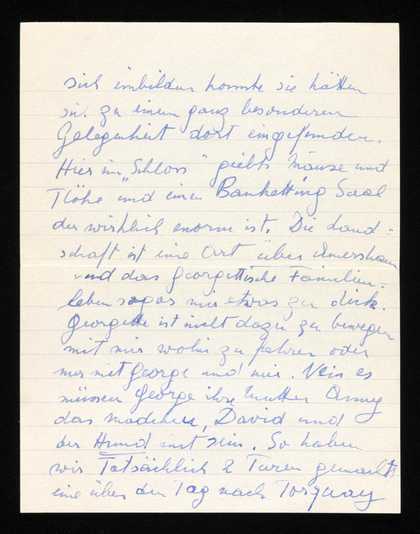 sich einbilden konnte sie hätten
sich zu einer ganz besonderen
Gelegenheit dort eingefunden.
Hier im „Schloss" giebts Mäuse und
Flöhe und einen Banketting Saal
der wirklich enorm ist. Die Land-
schaft ist eine Art über Amersham
und das Georgettische Familien-
leben sogar mir etwas zu dick.
Georgette ist nicht dazu zu bewegen
mit mir wohin zu fahren oder
nur mit George und mir. Nein es
müssen George ihre Mutter
das Mädchen, David und
der Hund mit sein. So haben
wir Tatsächlich 2 Turen gemacht
eine über den Tag nach Torquay